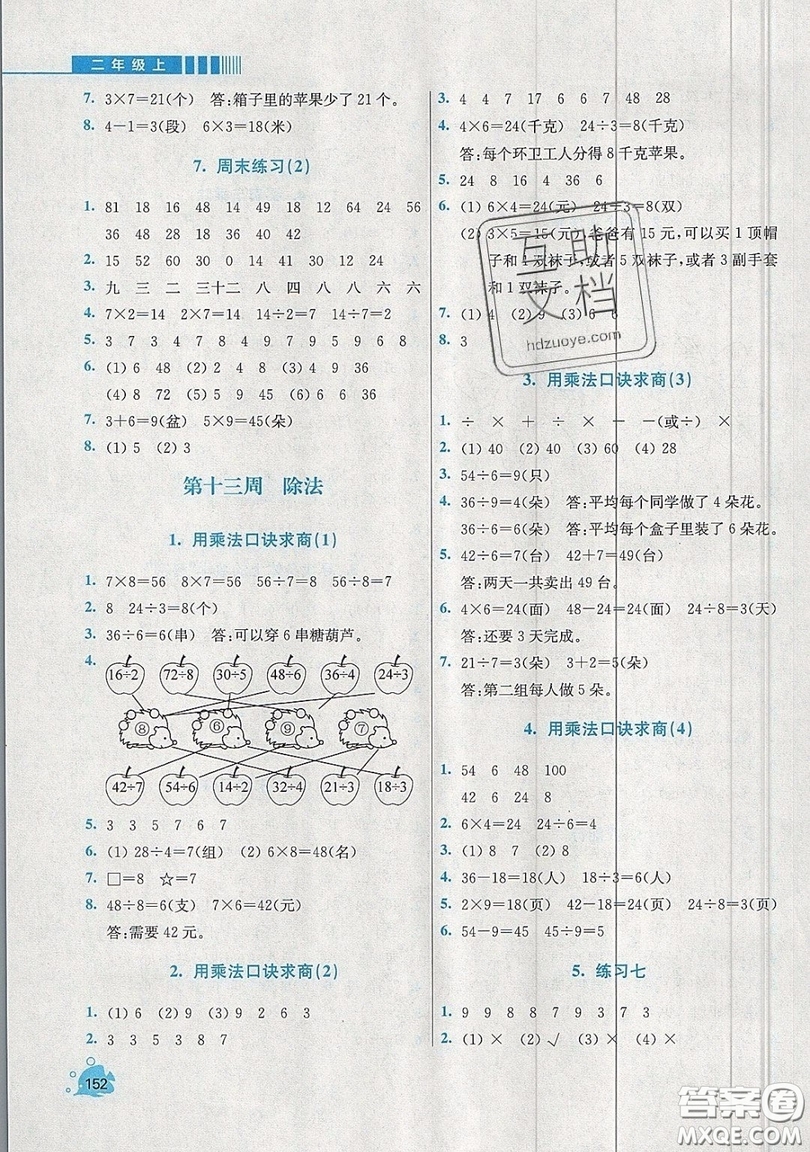 二年级上
7. 3×7=21(个) 答:箱子里的苹果少了21个。
8. 4-1=3(段) 6×3=18(米)
7. 周末练习(2)
1. 81 18 16 48 14 49 18 12 64 24 56
36 48 28 18 36 40 42
2. 15 52 60 30 0 14 41 30 12 24
3. 九 三 二 三十二 八 四 八 八 六 六
4. 7×2=14 2×7=14 14÷2=7 14÷7=2
5. 3 7 3 4 8 9 7 9 8 8 9
6. (1) 6 48 (2) 4 8 (3) 6 24
(4) 8 72 (5) 9 18 (6) 6 36
7. 3+6=9(盆) 5×9=45(朵)
8. (1) 5 (2) 3
第十三周 除法
1. 用乘法口诀求商(1)
1. 7×8=56 8×7=56 56÷7=8 56÷8=7
2. 8 24÷3=8(个)
3. 36÷6=6(串) 答:可以穿6串糖葫芦。
4. 16÷2 72÷8 30÷5 48÷6 36÷4 24÷3
⑧ ⑥ ⑨ ⑦
42÷7 54÷6 14÷2 32÷4 21÷3 18÷3
5. 3 3 5 7 6 7
6. (1) 28÷4=7(组) (2) 6×8=48(名)
7. □=8 ☆=7
8. 48÷8=6(支) 7×6=42(元)
答:需要42元。
2. 用乘法口诀求商(2)
1. (1) 6 (2) 9 (3) 9 2 6 3
2. 3 3 5 3 8 7
152
3. 4 4 7 17 6 6 7 48 28
4. 4×6=24(千克) 24÷3=8(千克)
答:每个环卫工人分得8千克苹果。
5. 24 8 16 4 36 6
6. (1) 6×4=24(元) 24÷3=8(双)
(2) 3×5=15(元) 爸爸有15元,可以买1顶帽
子和1双袜子,或者5双袜子,或者3副手套
和1双袜子。
7. (1) 4 (2) 9 (3) 6 8
8. 3
互助文档
hdzuoye.com
3. 用乘法口诀求商(3)
1. ÷ × + ÷ × -(或÷) ×
2. (1) 40 (2) 40 (3) 60 (4) 28
3. 54÷6=9(只)
4. 36÷9=4(朵) 答:平均每个同学做了4朵花。
36÷6=6(朵) 答:平均每个盒子里装了6朵花。
5. 42÷6=7(台) 42+7=49(台)
答:两天一共卖出49台。
6. 4×6=24(面) 48-24=24(面) 24÷8=3(天)
答:还要3天完成。
7. 21÷7=3(朵) 3+2=5(朵)
答:第二组每人做5朵。
4. 用乘法口诀求商(4)
1. 54 6 48 100
42 6 24 8
2. 6×4=24 24÷6=4
3. (1) 8 7 (2) 8
4. 36-18=18(人) 18÷3=6(人)
5. 2×9=18(页) 42-18=24(页) 24÷8=3(页)
6. 54-9=45 45÷9=5
5. 练习七
1. 9 9 8 8 7 9 3 7 3
2. (1) × (2) √ (3) × (4) ×
答案圈
MXQE.COM